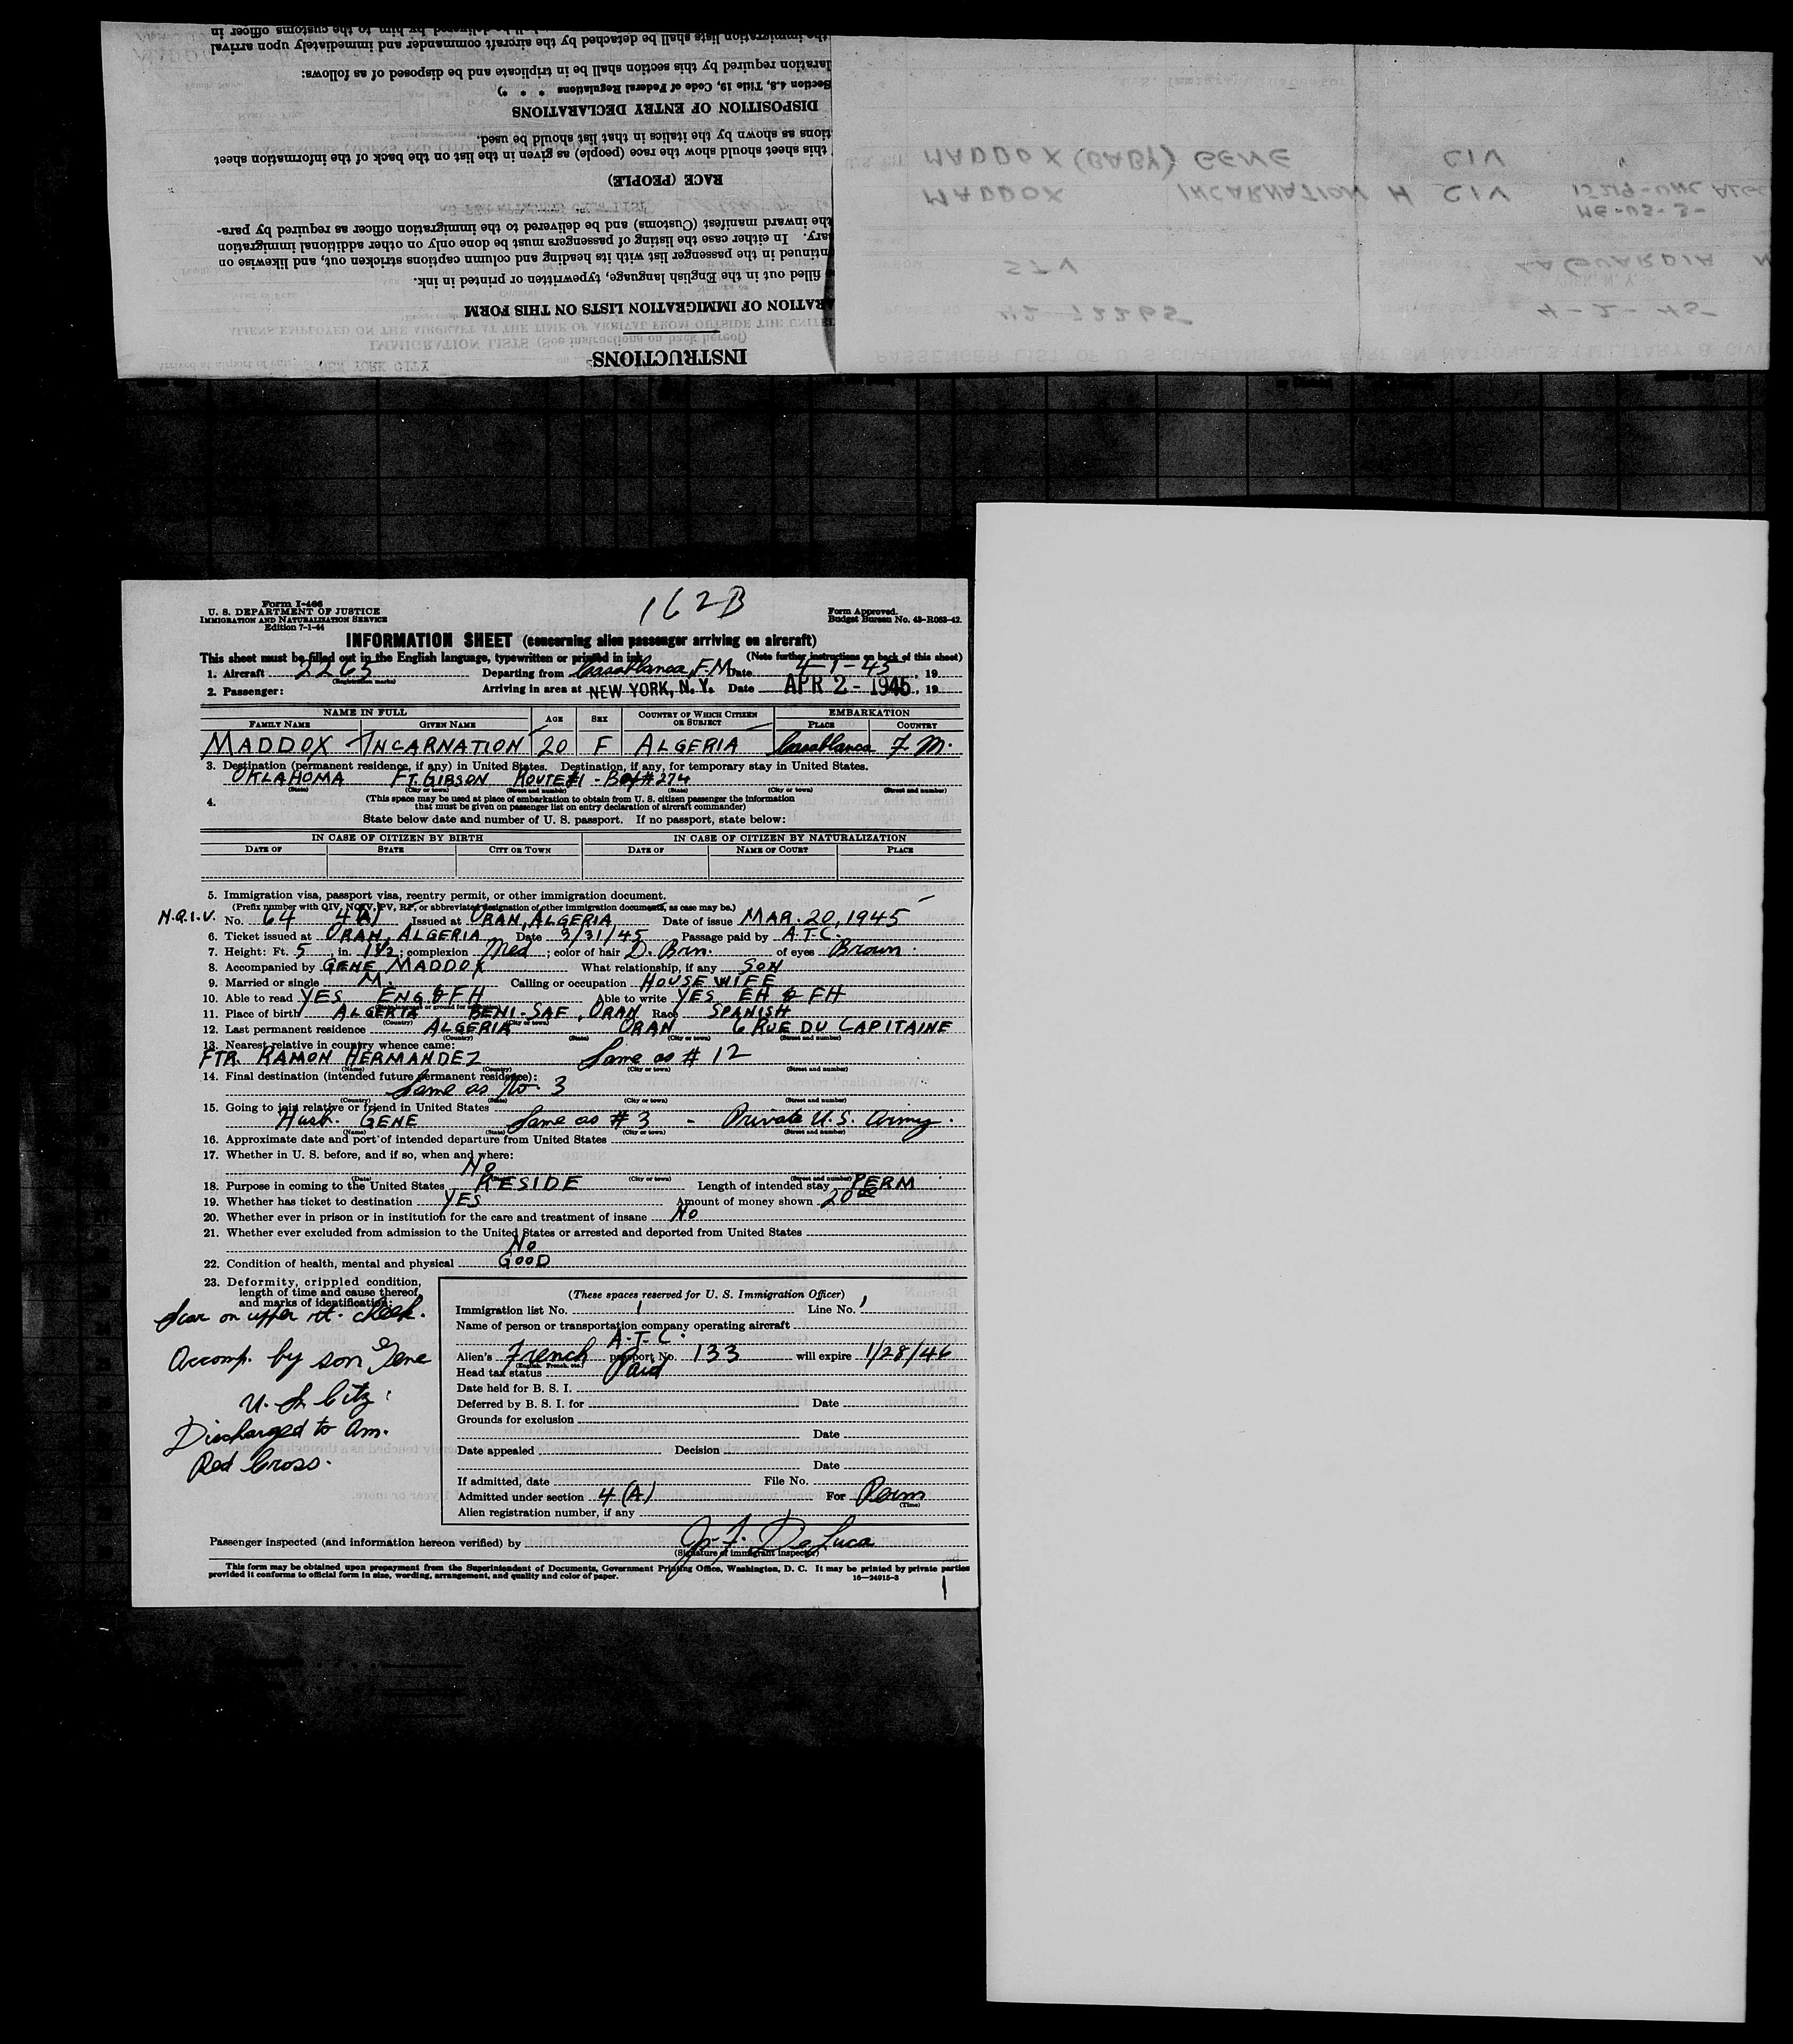 the immigration lists shall be detached by the aircraft commander and immediately upon arrival
laration required by this section shall be in triplicate and be disposed of as follows:
Section 4.8, Title 19, Code of Federal Regulations * * *)
DISPOSITION OF ENTRY DECLARATIONS
tions as shown by the italics in that list should be used.
this sheet should show the race (people) as given in the list on the back of the information sheet
RACE (PEOPLE)
the inward manifest (Customs) and be delivered to the immigration officer as required by para-
ary. In either case the listing of passengers must be done only on other additional immigration
ntinued in the passenger list with its heading and column captions stricken out, and likewise on
filled out in the English language, typewritten or printed in ink.
RATION OF IMMIGRATION LISTS ON THIS FORM
INSTRUCTIONS
MADDOX (BABY) GENE CIV
MADDOX INCARNATION H CIV
STV LA GUARDIA
42-72265 4-2-45
162B
Form I-466
U. S. DEPARTMENT OF JUSTICE
IMMIGRATION AND NATURALIZATION SERVICE
Edition 7-1-44
Form Approved.
Budget Bureau No. 43-R053-42.
INFORMATION SHEET (concerning alien passenger arriving on aircraft)
This sheet must be filled out in the English language, typewritten or printed in ink. (Note further instructions on back of this sheet)
1. Aircraft 2265 Departing from Casablanca, F.M. Date 4-1-45, 19
(Registration marks)
2. Passenger: Arriving in area at NEW YORK, N. Y. Date APR 2 - 1945, 19
NAME IN FULL AGE SEX COUNTRY OF WHICH CITIZEN OR SUBJECT EMBARKATION
FAMILY NAME GIVEN NAME PLACE COUNTRY
MADDOX INCARNATION 20 F ALGERIA Casablanca F. M.
3. Destination (permanent residence, if any) in United States. Destination, if any, for temporary stay in United States.
OKLAHOMA FT. GIBSON ROUTE #1 - Box # 274
(State) (City or town) (Street and number) (State) (City or town) (Street and number)
4. (This space may be used at place of embarkation to obtain from U. S. citizen passenger the information
that must be given on passenger list on entry declaration of aircraft commander)
State below date and number of U. S. passport. If no passport, state below:
IN CASE OF CITIZEN BY BIRTH IN CASE OF CITIZEN BY NATURALIZATION
DATE OF STATE CITY OR TOWN DATE OF NAME OF COURT PLACE
5. Immigration visa, passport visa, reentry permit, or other immigration document.
(Prefix number with QIV, NQIV, PV, RP, or abbreviated designation of other immigration documents, as case may be.)
N.Q.I.V. No. 64 4(A) Issued at ORAN, ALGERIA Date of issue MAR. 20, 1945
6. Ticket issued at ORAN, ALGERIA Date 3/31/45 Passage paid by A.T.C.
7. Height: Ft. 5 in. 1½; complexion Med; color of hair D. Brn. of eyes Brown.
8. Accompanied by GENE MADDOX What relationship, if any SON
9. Married or single M. Calling or occupation HOUSEWIFE
10. Able to read YES ENG & FH Able to write YES EH & FH
11. Place of birth ALGERIA BENI-SAF, ORAN Race SPANISH
(Country) (City or town)
12. Last permanent residence ALGERIA ORAN 6 RUE DU CAPITAINE
(Country) (State) (City or town) (Street and number)
13. Nearest relative in country whence came:
FTR. RAMON HERMANDEZ Same as # 12
(Name) (Country) (City or town) (Street and number)
14. Final destination (intended future permanent residence):
Same as No. 3
(Country) (State) (City or town) (Street and number)
15. Going to join relative or friend in United States
Husb. GENE Same as # 3 - Private U.S. Army.
(Name) (State) (City or town) (Street and number)
16. Approximate date and port of intended departure from United States
17. Whether in U. S. before, and if so, when and where:
No
(Date) (City or town) (Street and number)
18. Purpose in coming to the United States RESIDE Length of intended stay PERM
19. Whether has ticket to destination YES Amount of money shown 20 00
20. Whether ever in prison or in institution for the care and treatment of insane No
21. Whether ever excluded from admission to the United States or arrested and deported from United States
No
22. Condition of health, mental and physical GOOD
23. Deformity, crippled condition,
length of time and cause thereof,
and marks of identification:
Scar on upper rt. cheek.
Accomp. by son Gene
U. S. Citz.
Discharged to Am.
Red Cross.
(These spaces reserved for U. S. Immigration Officer)
Immigration list No. 1 Line No. 1
Name of person or transportation company operating aircraft
A.T.C.
Alien's French passport No. 133 will expire 1/28/46
(English, French, etc.)
Head tax status Paid
Date held for B. S. I.
Deferred by B. S. I. for Date
Grounds for exclusion
Date
Date appealed Decision
Date
If admitted, date File No.
Admitted under section 4(A) For Perm
(Time)
Alien registration number, if any
Passenger inspected (and information hereon verified) by J. F. De Luca
(Signature of immigrant inspector)
This form may be obtained upon prepayment from the Superintendent of Documents, Government Printing Office, Washington, D. C. It may be printed by private parties
provided it conforms to official form in size, wording, arrangement, and quality and color of paper. 16—24915-3
1